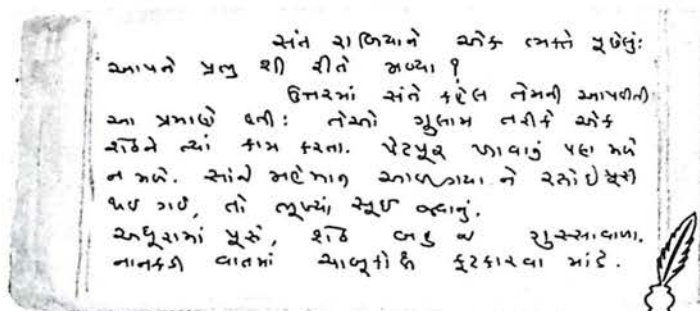 સંત રાબિયાને એક ભક્તે પૂછેલું:
આપને પ્રભુ શી રીતે મળ્યા ?
ઉત્તરમાં સંતે કહેલ તેમની આપવીતી
આ પ્રમાણે હતી: તેઓ ગુલામ તરીકે એક
શેઠને ત્યાં કામ કરતા. પેટપૂર ખાવાનું પણ મળે
ન મળે. સાંજે મહેમાન આવી ગયા ને રસોઈ પૂરી
થઈ ગઈ, તો ભૂખ્યાં સૂઈ જવાનું.
અધૂરામાં પૂરું, શેઠ બહુ જ ગુસ્સાવાળા.
નાનકડી વાતમાં ચાબૂકો જ ફટકારવા માંડે.